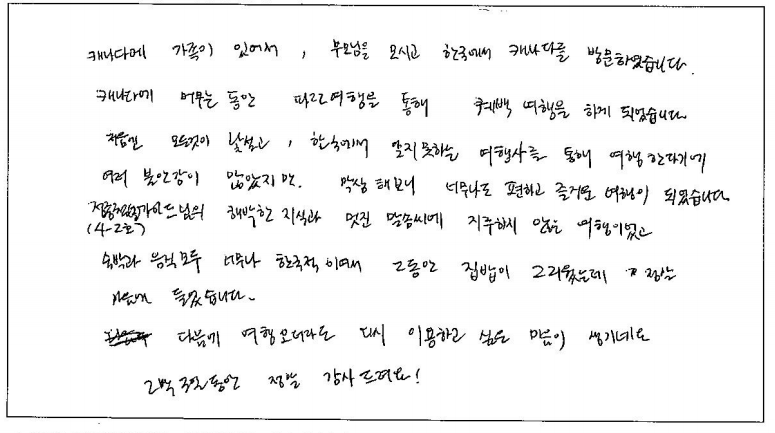 캐나다에 가족이 있어서, 부모님을 모시고 한국에서 캐나다를 방문하였습니다.
캐나다에 머무는 동안 파란여행을 통해 퀘백 여행을 하게 되었습니다
처음엔 모든것이 낯설고, 한국에서 알지못하는 여행사를 통해 여행한다기에
여러 불안감이 많았지만. 막상 해보니 너무나도 편하고 즐거운 여행이 되었습니다
가이드님의 해박한 지식과 멋진 말솜씨에 지루하지 않은 여행이었고
(4-2호)
숙박과 음식 모두 너무나 한국적이여서 그동안 집밥이 그리웠는데 정말
마음에 들었습니다.
다음에 여행오더라도 다시 이용하고 싶은 마음이 생기네요
2박 3일동안 정말 감사드려요!